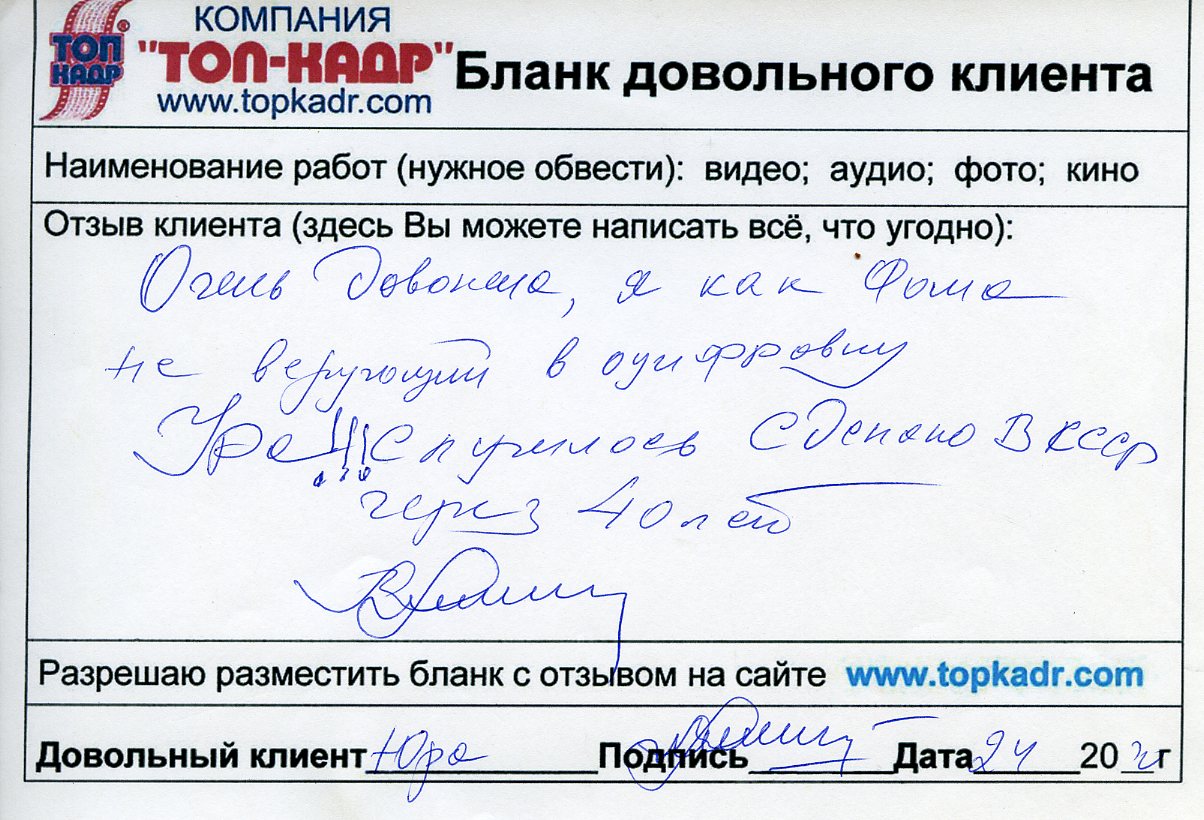 ТОП
КАДР
®
КОМПАНИЯ
"ТОП-КАДР"
www.topkadr.com
Бланк довольного клиента
Наименование работ (нужное обвести): видео; аудио; фото; кино
Отзыв клиента (здесь Вы можете написать всё, что угодно):
Очень довольна, я как Фома
не верующий в оцифровку
Ура!!! Случилось Сделано В КСССР
через 40 лет
Разрешаю разместить бланк с отзывом на сайте www.topkadr.com
Довольный клиент Юра Подпись Дата 24 20 г